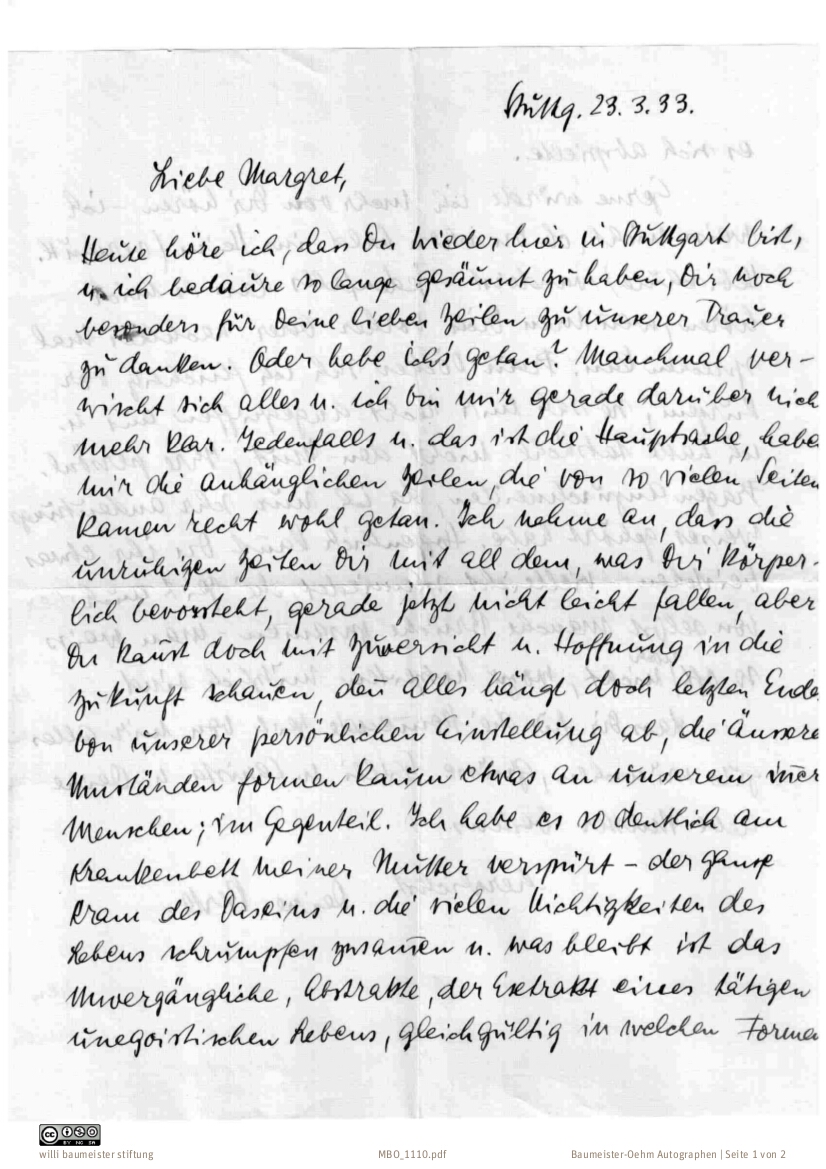 Stuttg. 23.3.33.
Liebe Margret,
Heute höre ich, dass Du wieder hier in Stuttgart bist,
u. ich bedaure so lange gesäumt zu haben, Dir noch
besonders für Deine lieben Zeilen zu unserer Trauer
zu danken. Oder habe ich's getan? Manchmal ver-
wischt sich alles u. ich bin mir gerade darüber nich
mehr klar. Jedenfalls u. das ist die Hauptsache, habe
mir die anhänglichen Zeilen, die von so vielen Seiten
kamen recht wohl getan. Ich nehme an, dass die
unruhigen Zeiten Dir mit all dem, was Dir körper-
lich bevorsteht, gerade jetzt nicht leicht fallen, aber
Du kannst doch mit Zuversicht u. Hoffnung in die
Zukunft schauen, deñ alles hängt doch letzten Ende
von unserer persönlichen Einstellung ab, die äussere
Umständen formen kaum etwas an unserem iñer
Menschen; im Gegenteil. Ich habe es so deutlich am
Krankenbett meiner Mutter verspürt – der ganze
Kram des Daseins u. die vielen Nichtigkeiten des
Lebens schrumpfen zusam̄en u. was bleibt ist das
Unvergängliche, Abstrakte, der Extrakt eines tätigen
unegoistischen Lebens, gleichgültig in welchen Formen
willi baumeister stiftung
MBO_1110.pdf
Baumeister-Oehm Autographen | Seite 1 von 2